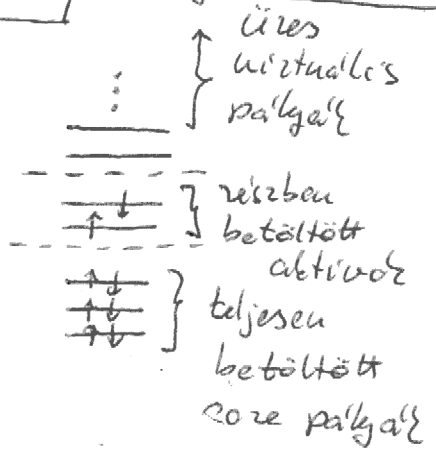 üres
virtuális
pályák
részben
betöltött
aktívok
teljesen
betöltött
core pályák